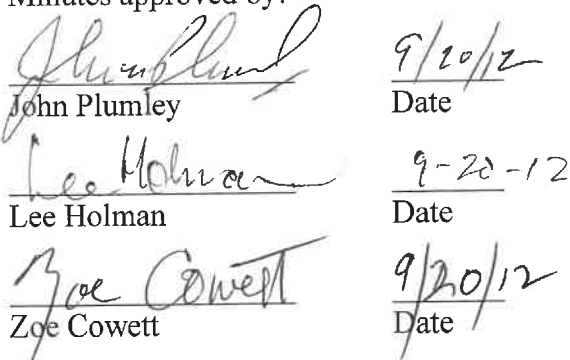 Minutes approved by:
John Plumley 9/20/12
John Plumley Date
Lee Holman 9-20-12
Lee Holman Date
Zoe Cowett 9/20/12
Zoe Cowett Date